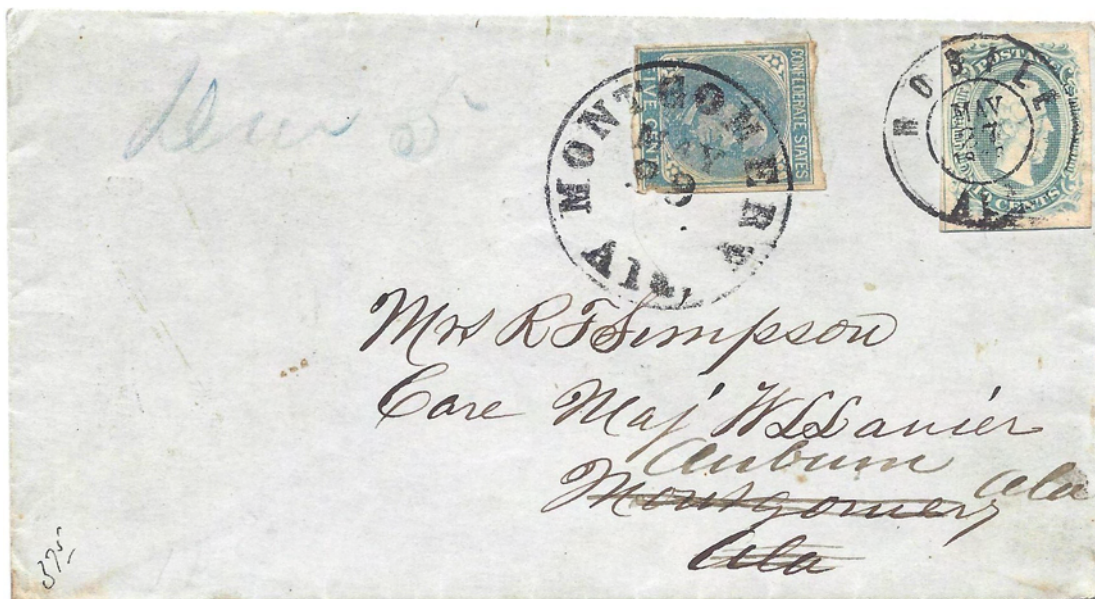 Due 5
CONFEDERATE STATES
FIVE CENTS
MONTGOMERY ALA.
MAY
POSTAGE
CENTS
MOBILE
MAY
ALA
Mrs R F Simpson
Care Maj W L Lanier
Auburn
Montgomery Ala
Ala
375